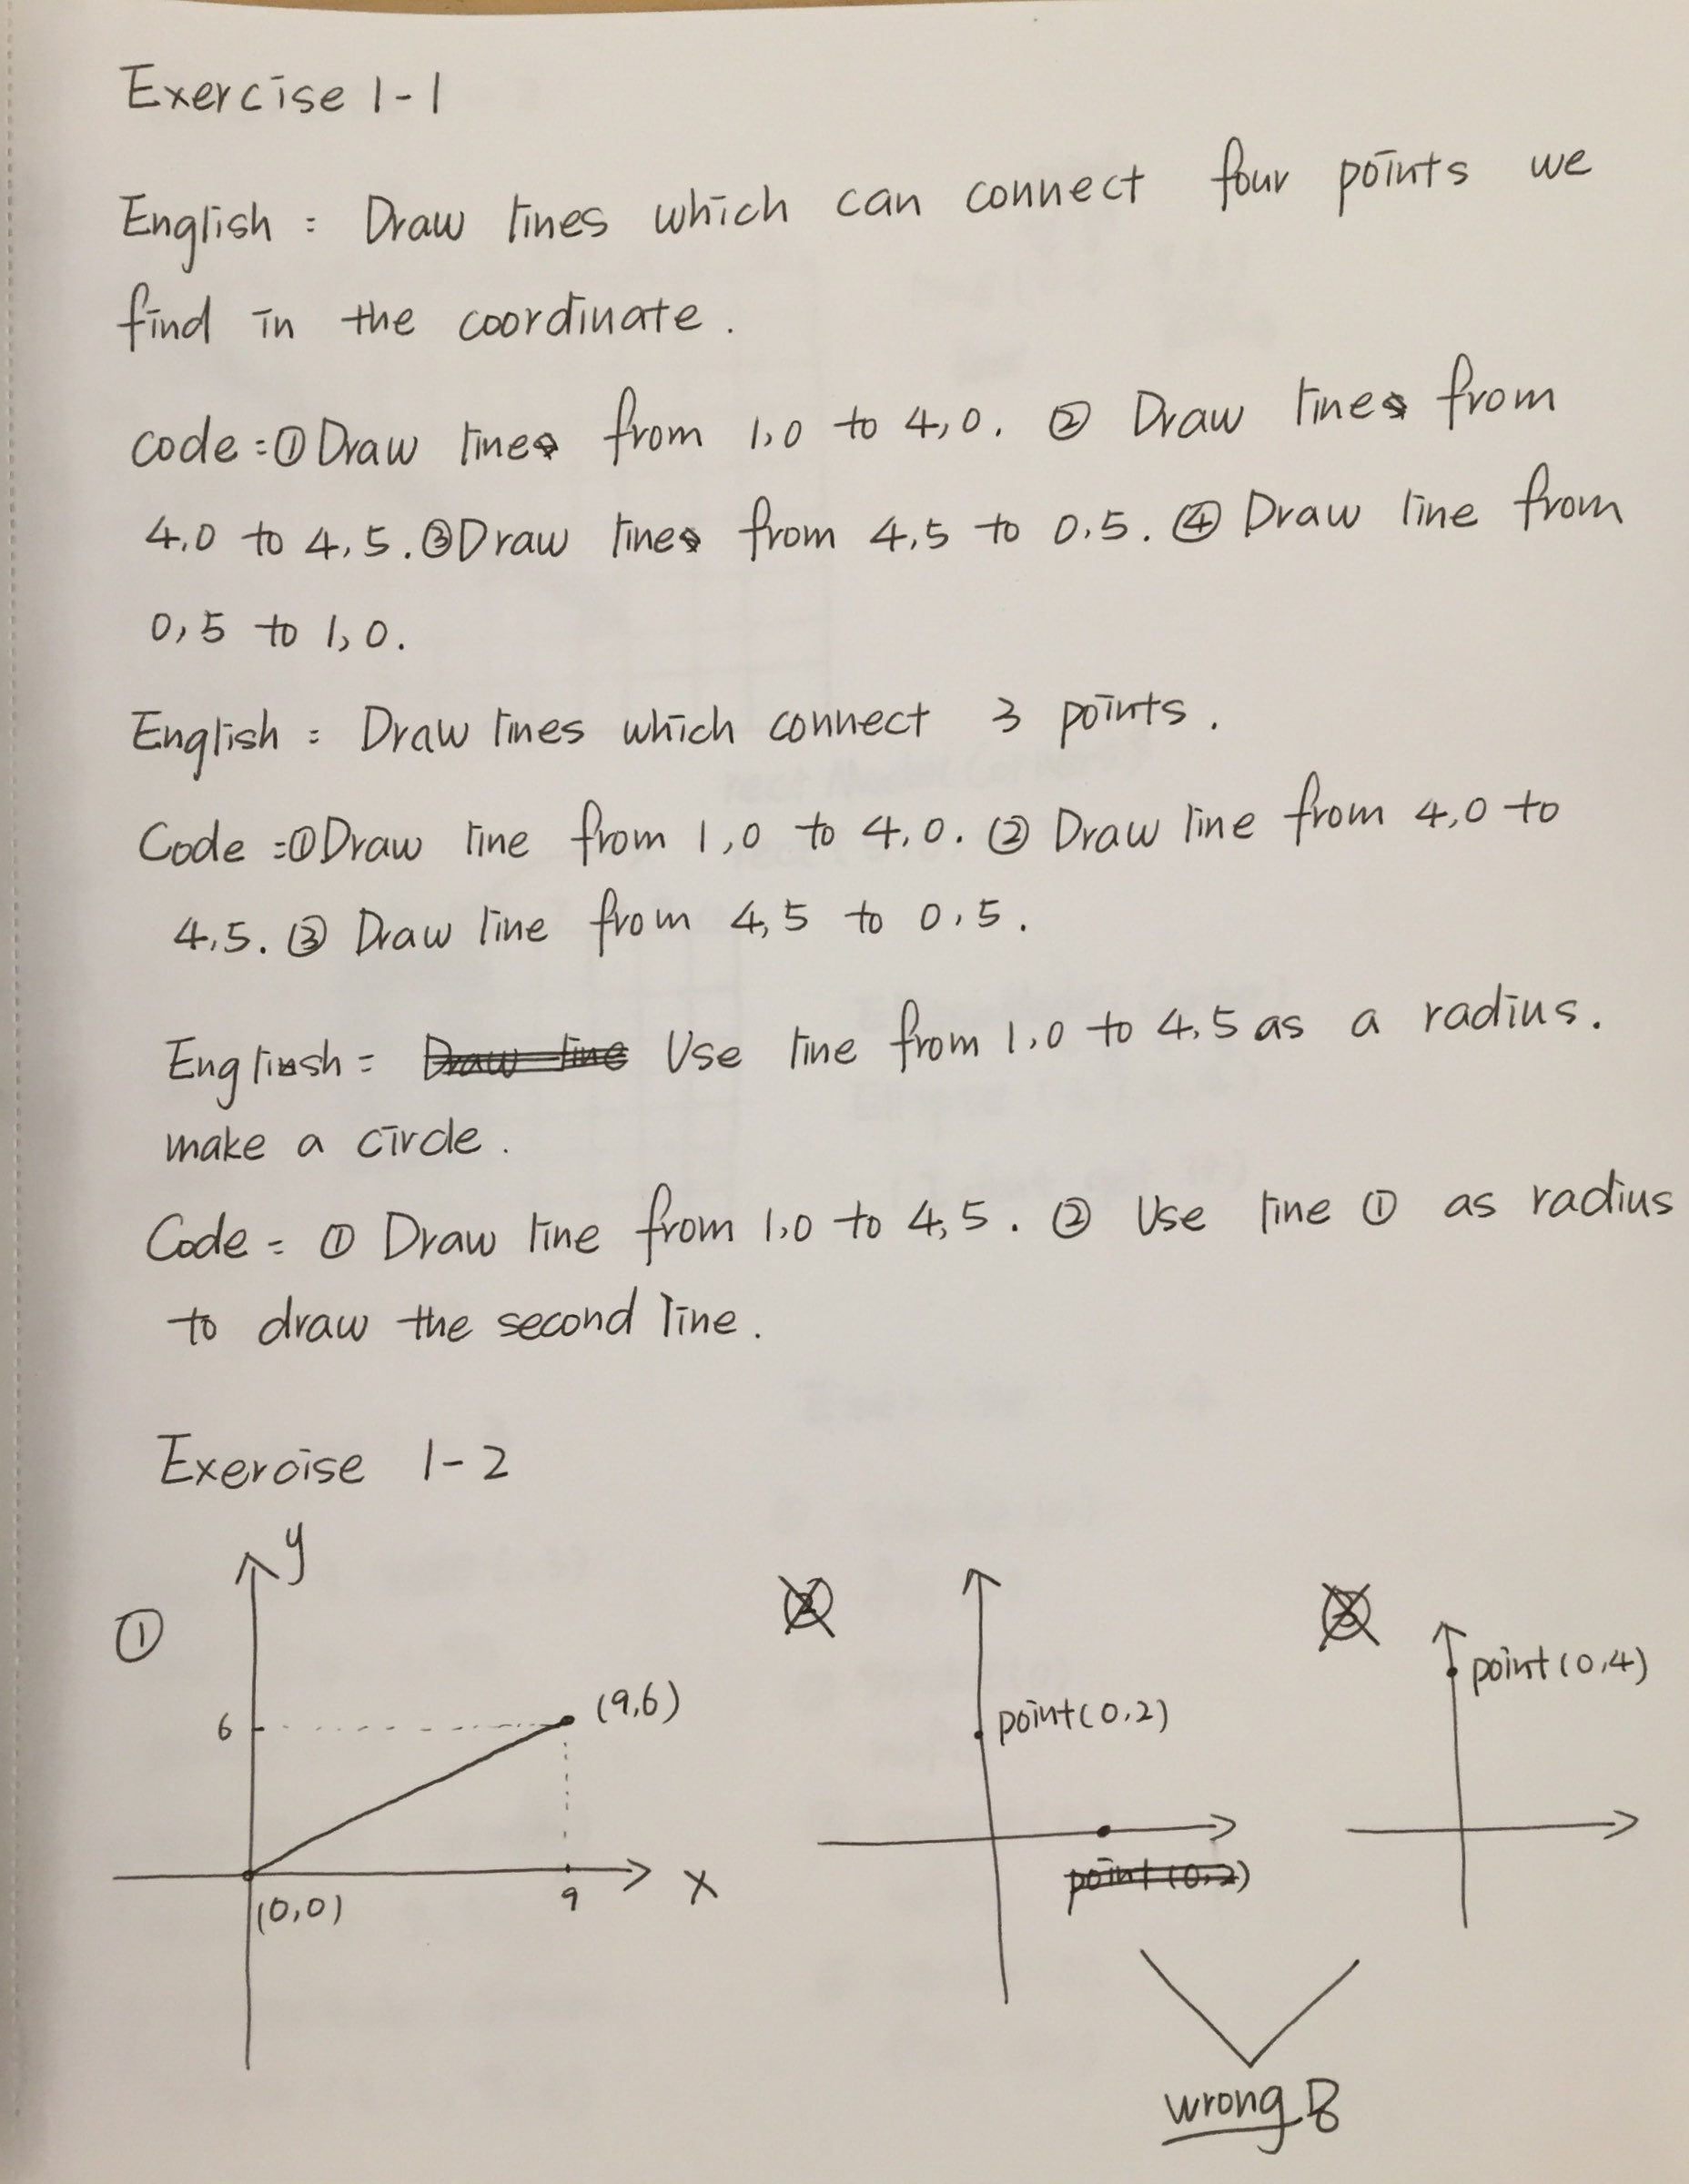 Exercise 1-1
English : Draw lines which can connect four points we
find in the coordinate.
code : ① Draw line from 1,0 to 4,0. ② Draw line from
4,0 to 4,5. ③ Draw line from 4,5 to 0,5. ④ Draw line from
0,5 to 1,0.
English : Draw lines which connect 3 points.
Code : ① Draw line from 1,0 to 4,0. ② Draw line from 4,0 to
4,5. ③ Draw line from 4,5 to 0,5.
English : Draw line Use line from 1,0 to 4,5 as a radius.
make a circle.
Code : ① Draw line from 1,0 to 4,5. ② Use line ① as radius
to draw the second line.
Exercise 1-2
y
① ② ③
point(0,4)
(9,6)
6
point(0,2)
point(0,2)
x
9
(0,0)
wrong